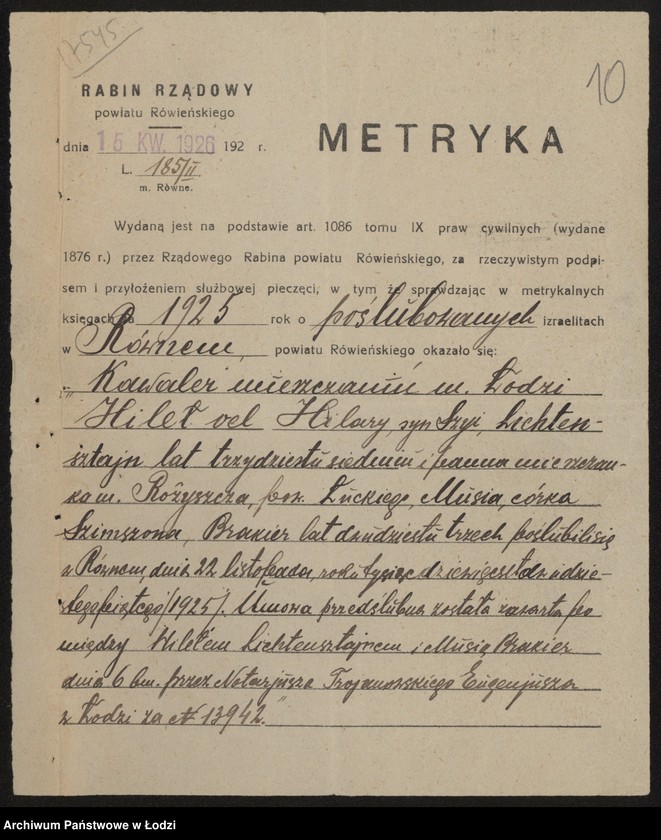 17545
10
RABIN RZĄDOWY
powiatu Rówieńskiego
dnia 15 KW. 1926 192 r.
METRYKA
L. 185/II
m. Równe.
Wydaną jest na podstawie art. 1086 tomu IX praw cywilnych (wydane
1876 r.) przez Rządowego Rabina powiatu Rówieńskiego, za rzeczywistym podpi-
sem i przyłożeniem służbowej pieczęci, w tym że sprawdzając w metrykalnych
księgach za 1925 rok o poślubowanych izraelitach
w Równem, powiatu Rówieńskiego okazało się:
„Kawaler mieszczanin m. Łodzi
Hileł vel Hilary, syn Szyi, Lichten-
sztajn lat trzydziestu siedmiu i panna mieszczan-
ka m. Rożyszcza, pow. Łuckiego, Musia, córka
Szimszona, Brakier lat dwudziestu trzech poślubili się
w Równem, dnia 22 listopada, roku tysiąc dziewięćset dwudzie-
stego piątego /1925/. Umowa przedślubna została zawarta po
między Hilełem Lichtensztajnem i Musią Brakier
dnia 6 bm. przez Notarjusza Trojanowskiego Eugenjusza
z Łodzi za № 13942."
Archiwum Państwowe w Łodzi